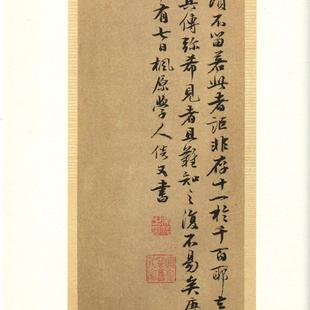 須不留若此者詎非存十一於千百耶
其傳弥希見者且難知之復不易矣
有七日楓原學人倓又書